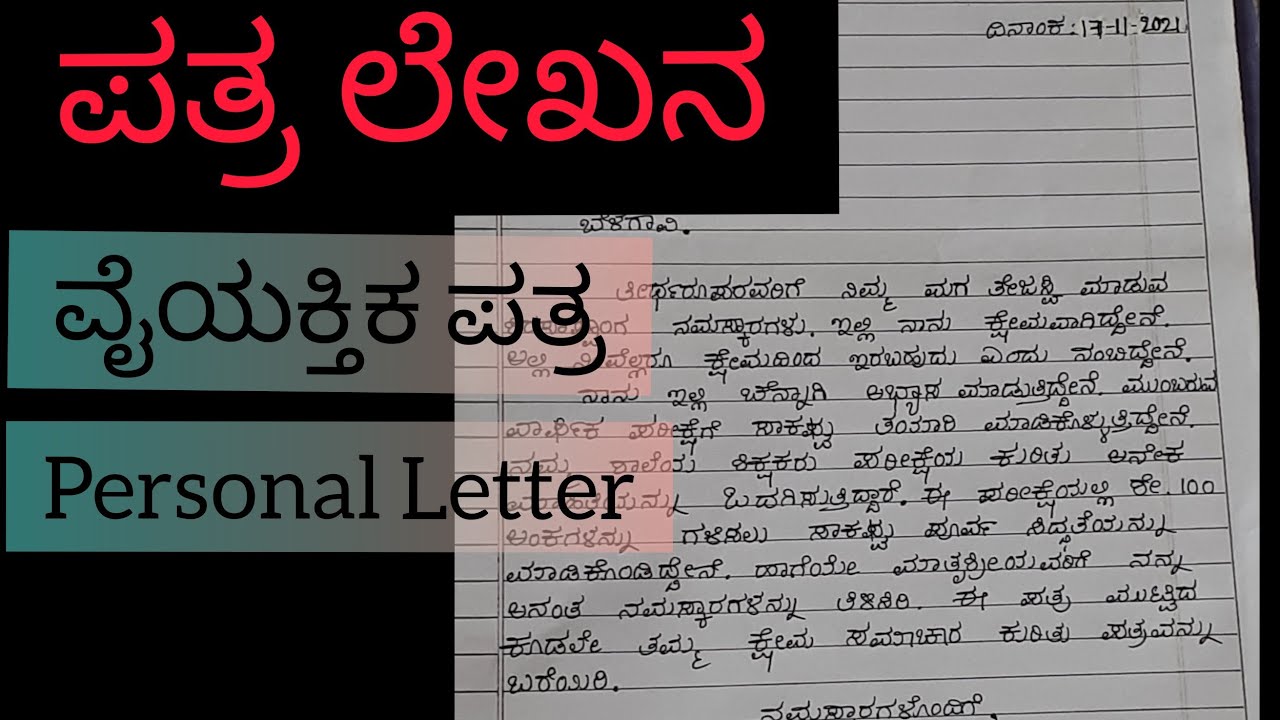 ಪತ್ರ ಲೇಖನ
ವೈಯಕ್ತಿಕ ಪತ್ರ
Personal Letter
ದಿನಾಂಕ : 17-11-2021
ಬೆಳಗಾವಿ.
ತೀರ್ಥರೂಪರವರಿಗೆ ನಿಮ್ಮ ಮಗ ತೇಜಸ್ವಿ ಮಾಡುವ
ನಮಸ್ಕಾರಗಳು. ಇಲ್ಲಿ ನಾನು ಕ್ಷೇಮವಾಗಿದ್ದೇನೆ.
ಅಲ್ಲಿ ನೀವೆಲ್ಲರೂ ಕ್ಷೇಮದಿಂದ ಇರಬಹುದು ಎಂದು ನಂಬಿದ್ದೇನೆ.
ನಾನು ಇಲ್ಲಿ ಚೆನ್ನಾಗಿ ಅಭ್ಯಾಸ ಮಾಡುತ್ತಿದ್ದೇನೆ. ಮುಂಬರುವ
ವಾರ್ಷಿಕ ಪರೀಕ್ಷೆಗೆ ಸಾಕಷ್ಟು ತಯಾರಿ ಮಾಡಿಕೊಳ್ಳುತ್ತಿದ್ದೇನೆ.
ನಮ್ಮ ಶಾಲೆಯ ಶಿಕ್ಷಕರು ಪರೀಕ್ಷೆಯ ಕುರಿತು ಅನೇಕ
ಒದಗಿಸುತ್ತಿದ್ದಾರೆ. ಈ ಪರೀಕ್ಷೆಯಲ್ಲಿ ಶೇ. 100
ಅಂಕಗಳನ್ನು ಗಳಿಸಲು ಸಾಕಷ್ಟು ಪೂರ್ವ ಸಿದ್ಧತೆಯನ್ನು
ಮಾಡಿಕೊಂಡಿದ್ದೇನೆ. ಹಾಗೆಯೇ ಮಾತೃಶ್ರೀಯವರಿಗೆ ನನ್ನ
ಅನಂತ ನಮಸ್ಕಾರಗಳನ್ನು ತಿಳಿಸಿರಿ. ಈ ಪತ್ರ ಮುಟ್ಟಿದ
ಕೂಡಲೇ ತಮ್ಮ ಕ್ಷೇಮ ಸಮಾಚಾರ ಕುರಿತು ಪತ್ರವನ್ನು
ಬರೆಯಿರಿ.
ನಮಸ್ಕಾರಗಳೊಂದಿಗೆ,